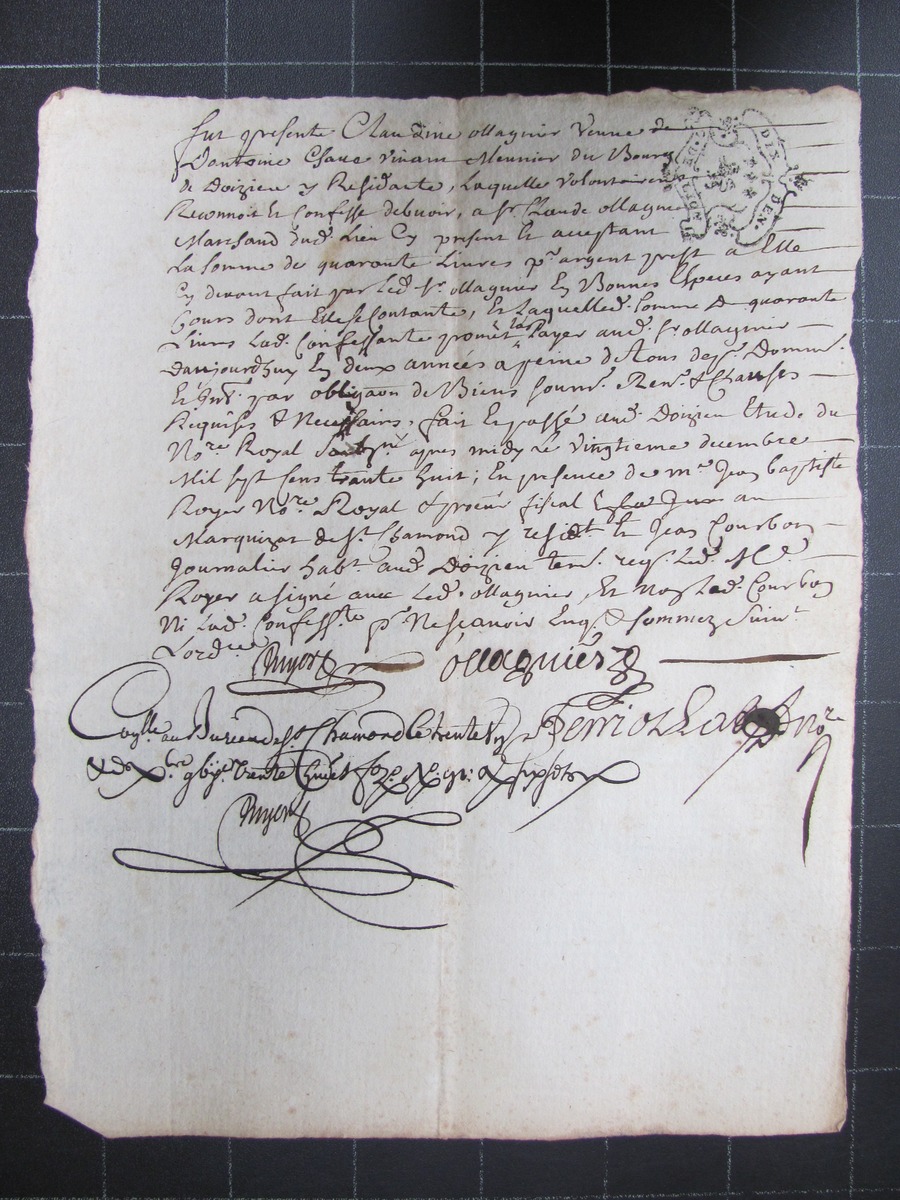 fut presente Claudine ollagnier Veuve de
D'antoine Chaue vivant Meunier du Bourg
de Doizieu y Residante, Laquelle volontairem
Reconnoit Et Confesse debuoir, a Sr. Claude ollagnier
Marchand dud. Lieu Cy present Et acceptant
La somme de quarante Liures pr. argent prest a Elle
Cy deuant fait par led. Sr. ollagnier En Bonnes Especes ayant
Cours dont Elle se Contante, Et Laquelled. somme de quarante
Liures Lad. Confessante promet la Payer aud. Sr. ollagnier
daujourdhuy En deux années a peine de tous desp. Domm.
Et Int. par obligaon de Biens soumr. Renr. & Clauses
Requises & Necessaires, fait Et passé aud. Doizieu Etude du
Nore. Royal soubsné apres midy Le vingtieme decembre
Mil sept sens trante huit; En presence de me. Jean baptiste
Royer Nore. Royal & procur fiscal au
Marquizat de St. Chamond y residt. Et Jean Courbon
Journalier habt. aud. Doizieu tem. req. Led. Me.
Royer a signé auec Led. ollagnier, Et non Led. Courbon
Ni Lad. Confess.te pr. Ne sçauoir Enq. & sommez Suiut.
Lordce
Royer ollagniér
Conlle. au Bureau de St. Chamond le trente
xbre trente huict
no.re
Royer
DIX DEN.